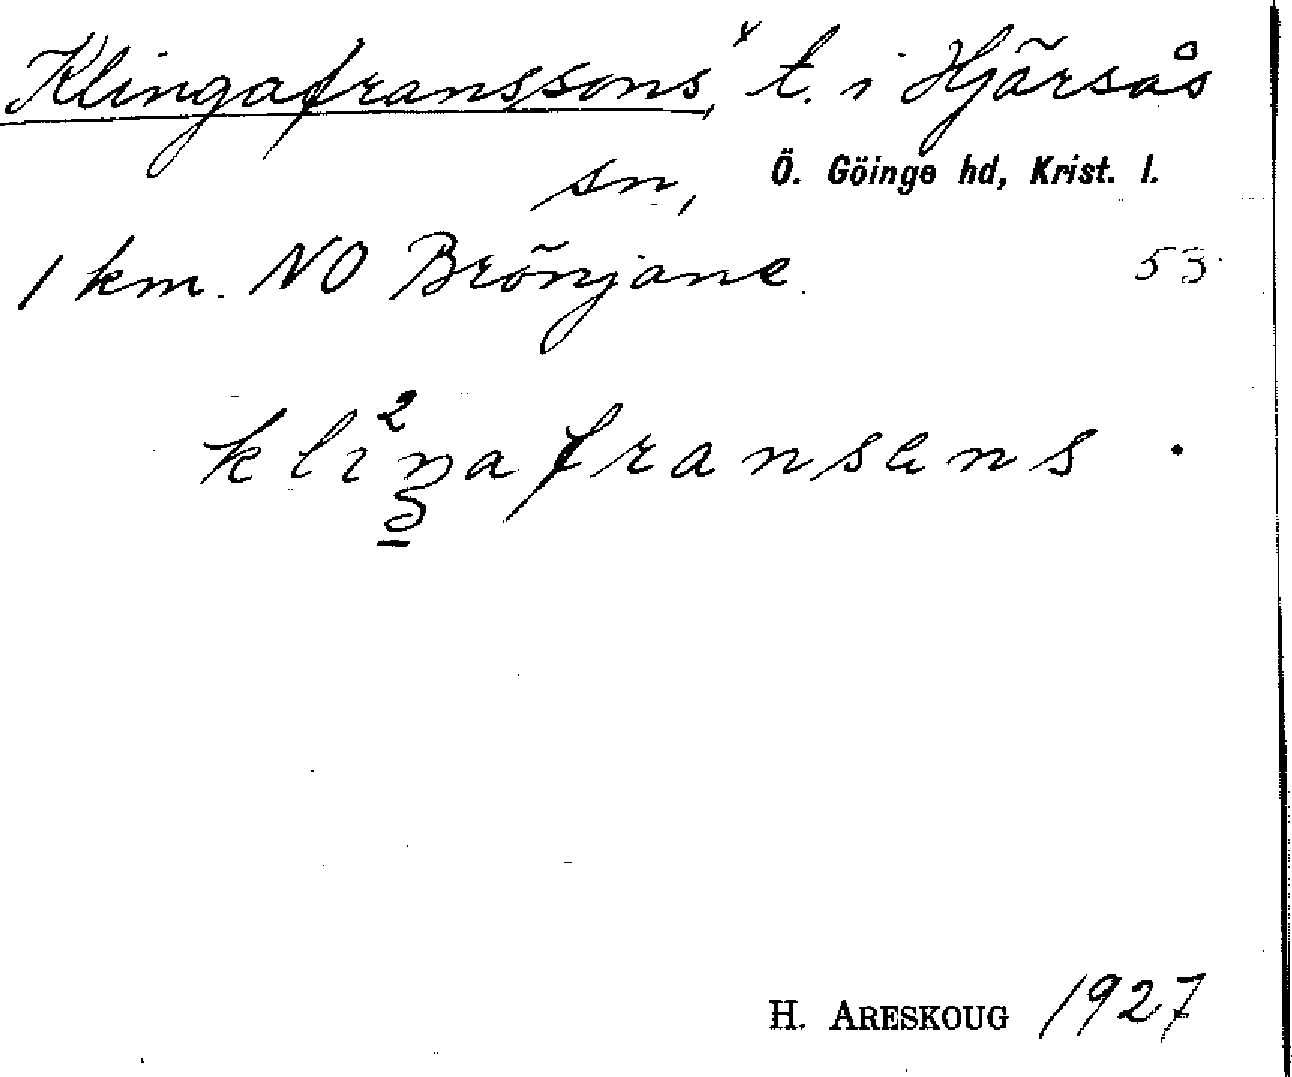 Klingafranssons, t. i Hjärsås
sn, Ö. Göinge hd, Krist. l.
1 km. NO Brönjane. 53.
klinafransens.
H. ARESKOUG 1927